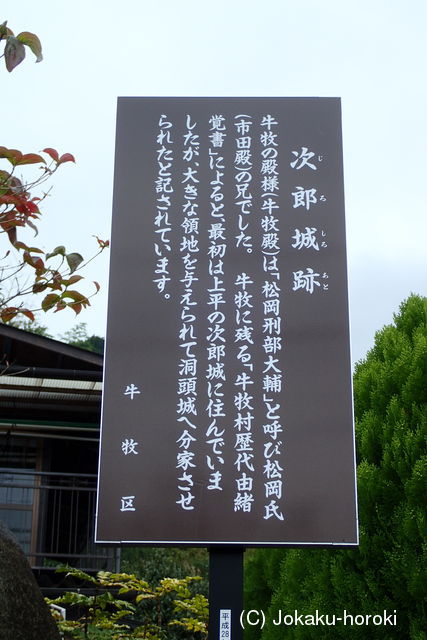 次郎城跡
じろしろあと
牛牧の殿様(牛牧殿)は、「松岡刑部大輔」と呼び松岡氏
(市田殿)の兄でした。 牛牧に残る「牛牧村歴代由緒
覚書」によると、最初は上平の次郎城に住んでいま
したが、大きな領地を与えられて洞頭城へ分家させ
られたと記されています。
牛牧区
平成28
(C) Jokaku-horoki